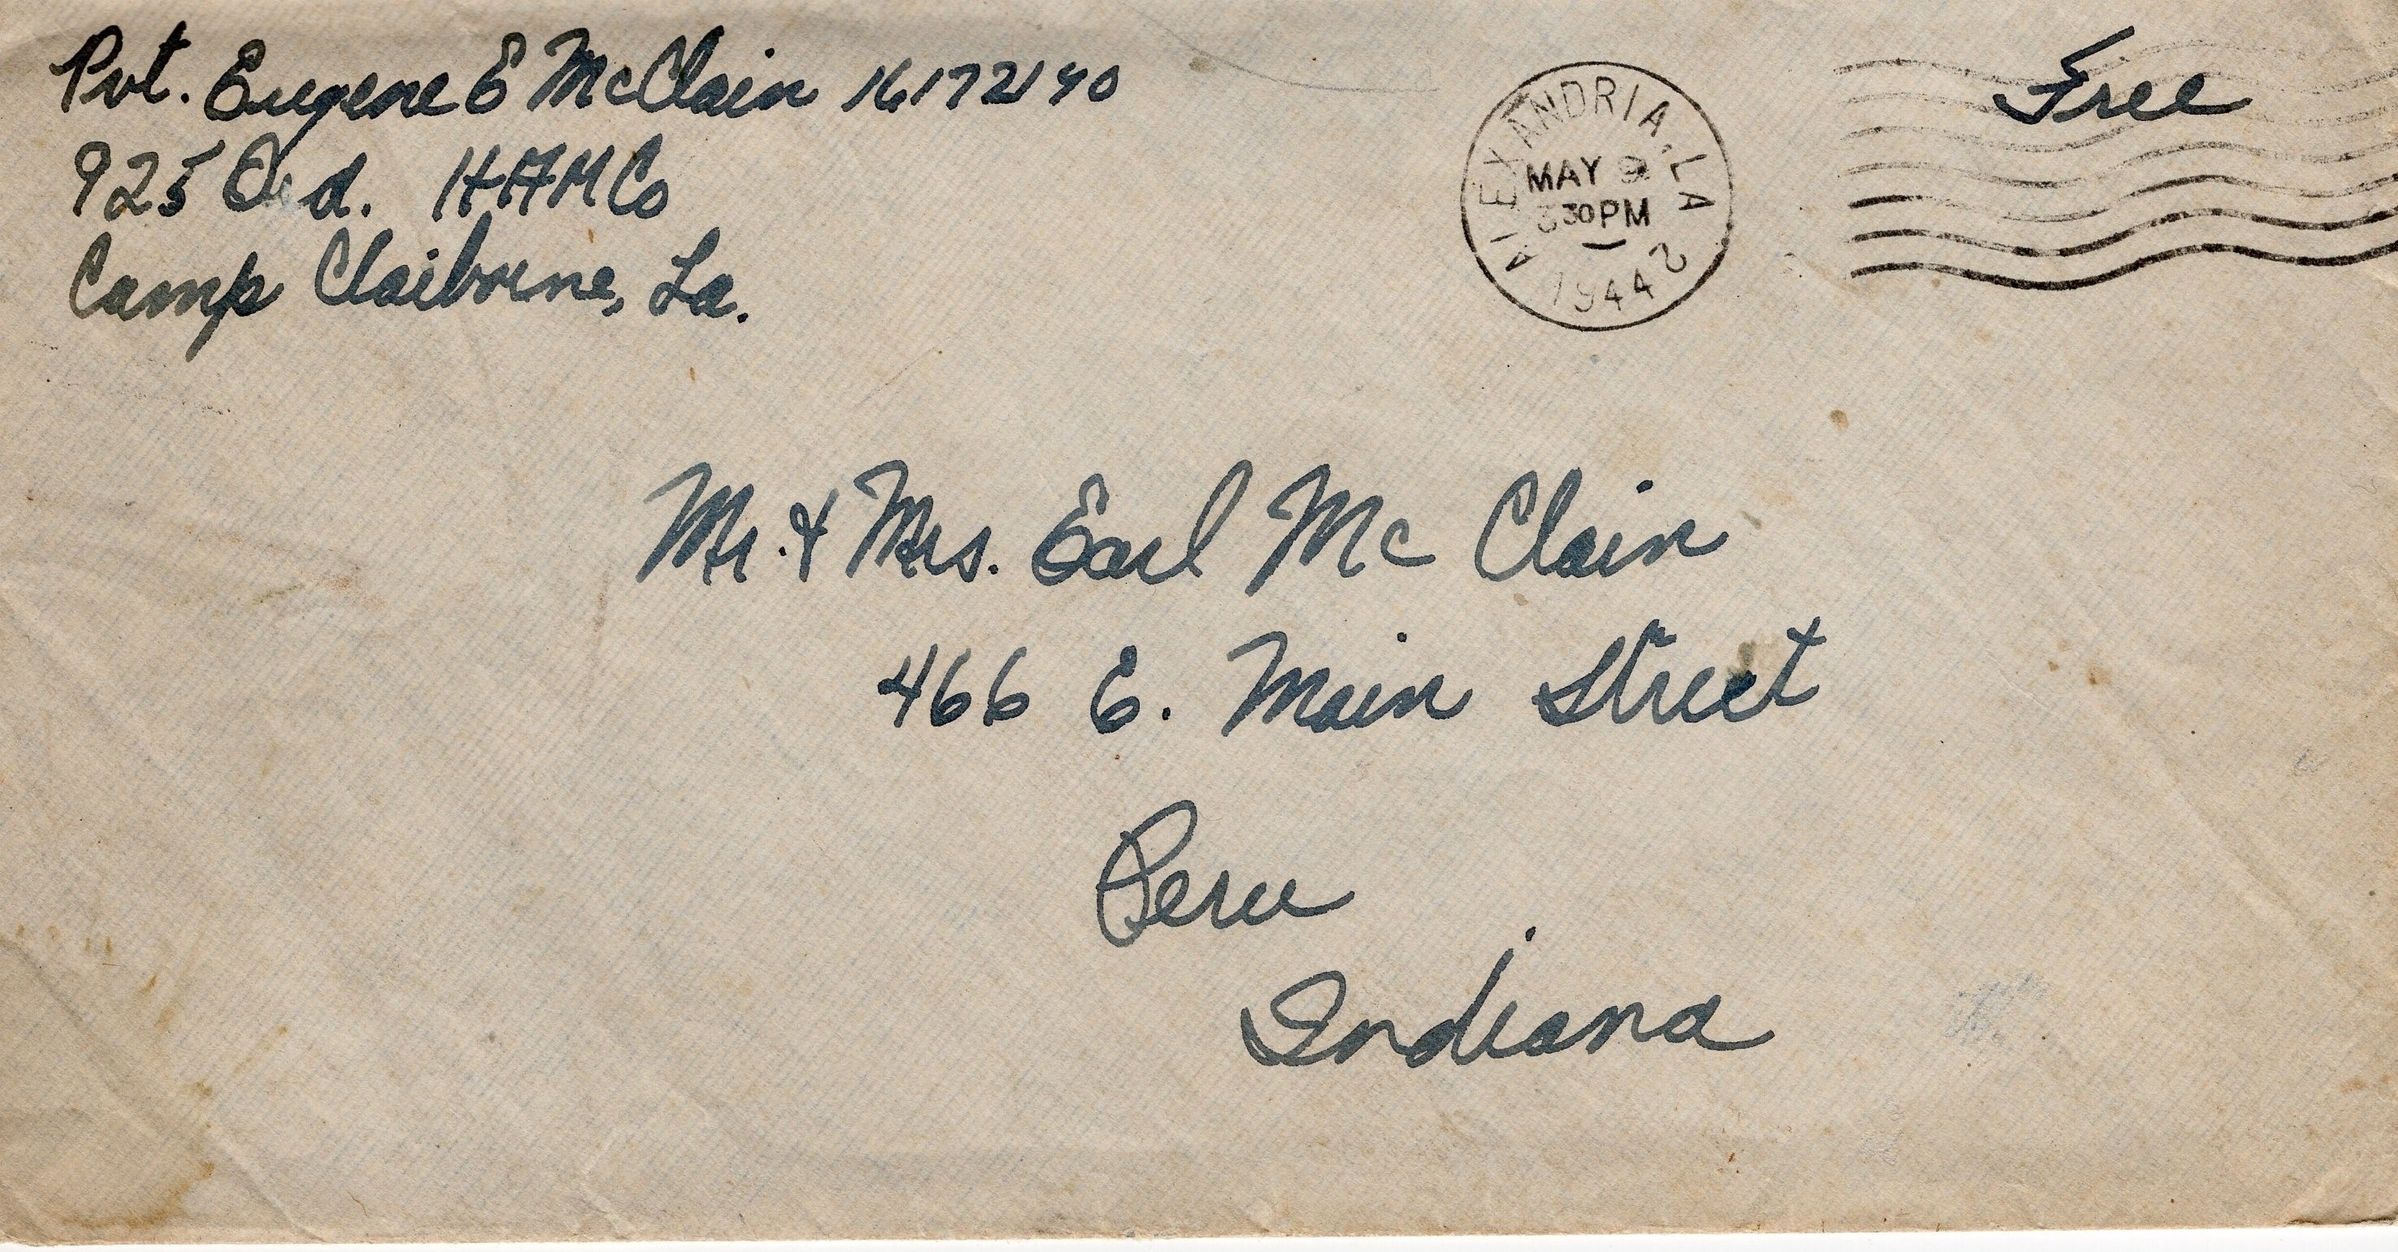 Pvt. Eugene E McClain 16172140
925 Ord. HAM Co
Camp Claiborne, La.
ALEXANDRIA, LA
MAY 9
3 30 PM
1944 2
Free
Mr. & Mrs. Earl Mc Clain
466 E. Main Street
Peru
Indiana